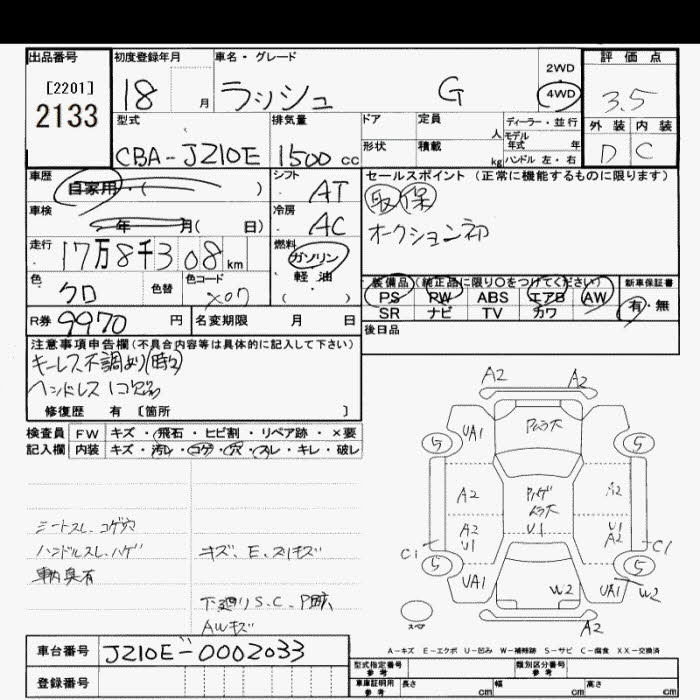 出品番号 初度登録年月 車名・グレード 2WD 評価点
[2201] 2133 18 月 ラッシュ G 4WD 3.5
型式 排気量 ドア 定員 人 ディーラー・並行 外装 内装
CBA-JZ10E 1500 cc 形状 積載 kg モデル年式 年 ハンドル 左・右 D C
車歴 自家用・( ) シフト AT セールスポイント (正常に機能するものに限ります)
車検 年 月( 日) 冷房 AC 取 保
オークション初
走行 17万8千308km 燃料 ガソリン
軽油
( )
色 クロ 色替 色コード X07
装備品 (純正品に限り○をつけてください) 新車保証書
PS PW ABS エアB AW 有・無
SR ナビ TV カワ
R券 9970 円 名変期限 月 日 後日品
注意事項申告欄 (不具合内容等は具体的に記入して下さい)
キーレス不調あり
修復歴 有 [箇所 ]
検査員 FW キズ・飛石・ヒビ割・リペア跡・×要
記入欄 内装 キズ・汚レ・コゲ・穴・スレ・キレ・破レ
シートスレ、コゲ穴
ハンドルスレ、ハゲ
車内臭有
キズ、E、スリキズ
下廻りS、C、P
AWキズ
A2 A2
UA1
5 5
A2 A2
A2 U1 U1 U1 A2
C1 C1
5 5
UA1 W2 UA1 W2
A2
スペア
A-キズ E-エクボ U-凹み W-補修跡 S-サビ C-腐食 XX-交換済
車台番号 JZ10E-0002033
型式指定番号 参考 類別区分番号 参考
登録番号 車庫証明用 参考 長さ cm 幅 cm 高さ cm